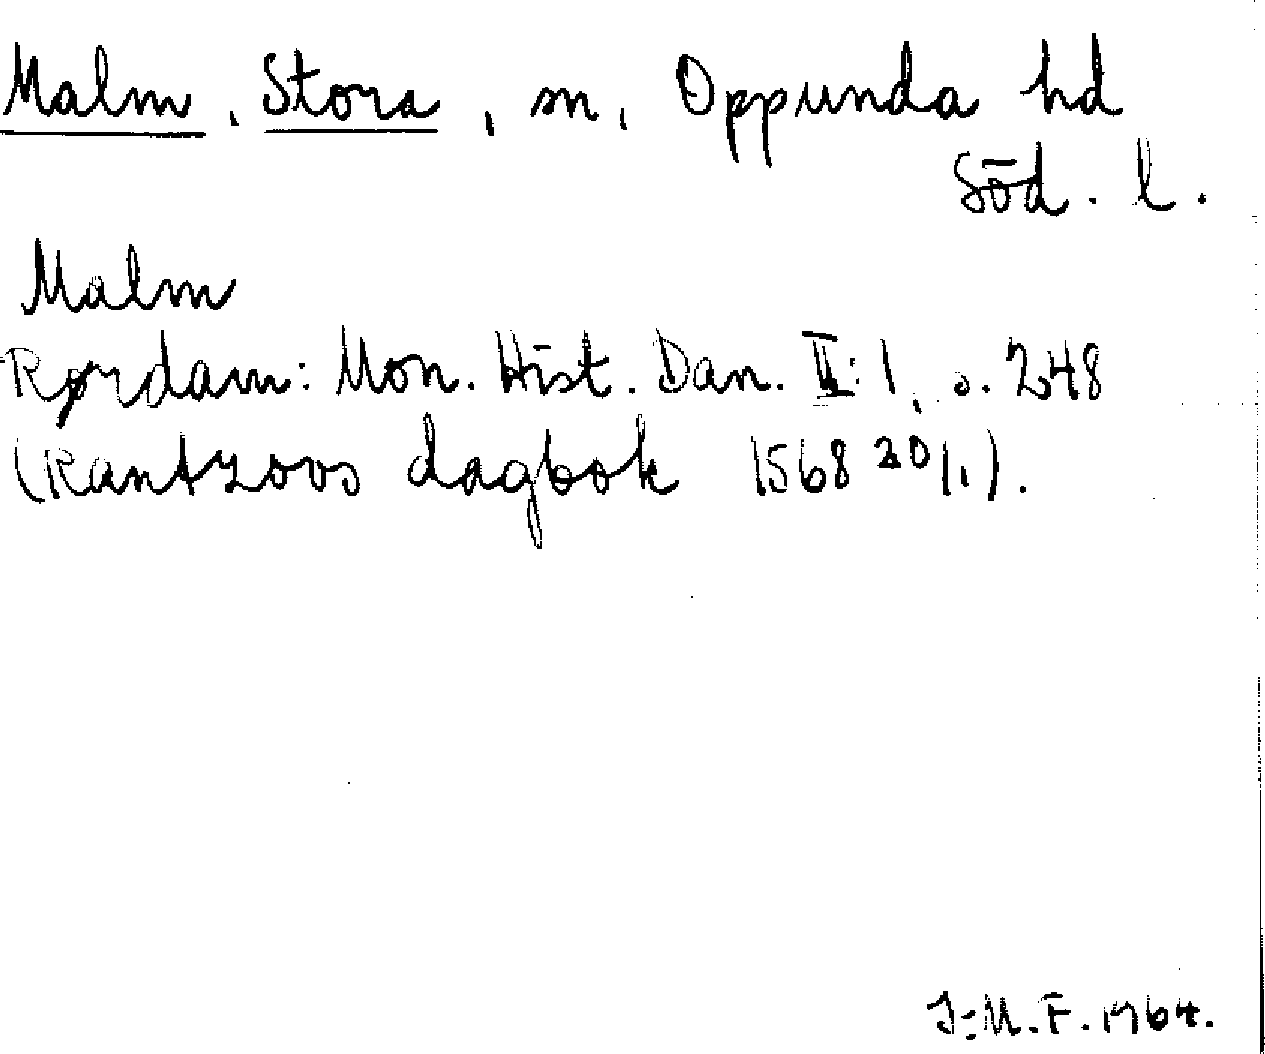 Malm, Stora, sn, Oppunda hd
Söd. l.
Malm
Rørdam: Mon. Hist. Dan. II:1, s. 248
(Rantzovs dagbok 1568 20/1).
I:M.F. 1964.